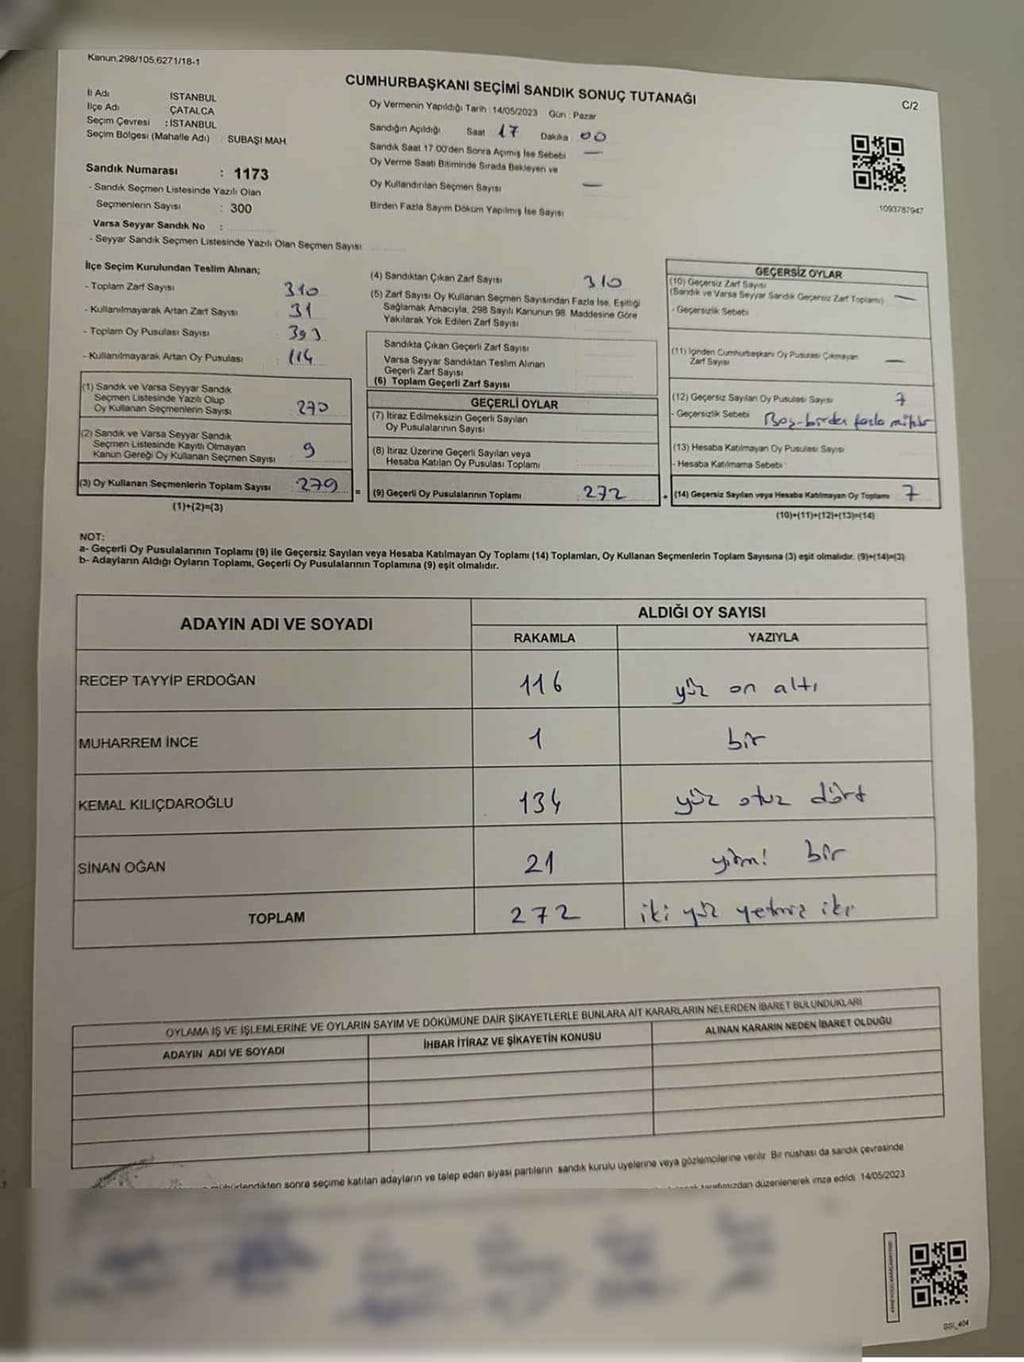 Kanun.298/105,6271/18-1
CUMHURBAŞKANI SEÇİMİ SANDIK SONUÇ TUTANAĞI
C/2
İl Adı İSTANBUL
İlçe Adı ÇATALCA
Seçim Çevresi : İSTANBUL
Seçim Bölgesi (Mahalle Adı) SUBAŞI MAH.
Oy Vermenin Yapıldığı Tarih : 14/05/2023 Gün : Pazar
Sandığın Açıldığı Saat 17 Dakika 00
Sandık Saat 17.00'den Sonra Açımış İse Sebebi —
Oy Verme Saati Bitiminde Sırada Bekleyen ve
Oy Kullandırılan Seçmen Sayısı —
Birden Fazla Sayım Döküm Yapılmış İse Sayısı
1093787947
Sandık Numarası : 1173
- Sandık Seçmen Listesinde Yazılı Olan
Seçmenlerin Sayısı : 300
Varsa Seyyar Sandık No :
- Seyyar Sandık Seçmen Listesinde Yazılı Olan Seçmen Sayısı
İlçe Seçim Kurulundan Teslim Alınan;
- Toplam Zarf Sayısı 310
- Kullanılmayarak Artan Zarf Sayısı 31
- Toplam Oy Pusulası Sayısı 393
- Kullanılmayarak Artan Oy Pusulası 114
(1) Sandık ve Varsa Seyyar Sandık
Seçmen Listesinde Yazılı Olup
Oy Kullanan Seçmenlerin Sayısı 270
(2) Sandık ve Varsa Seyyar Sandık
Seçmen Listesinde Kayıtlı Olmayan
Kanun Gereği Oy Kullanan Seçmen Sayısı 9
(3) Oy Kullanan Seçmenlerin Toplam Sayısı 279 =
(1)+(2)=(3)
(4) Sandıktan Çıkan Zarf Sayısı 310
(5) Zarf Sayısı Oy Kullanan Seçmen Sayısından Fazla İse, Eşitliği
Sağlamak Amacıyla, 298 Sayılı Kanunun 98. Maddesine Göre
Yakılarak Yok Edilen Zarf Sayısı
Sandıkta Çıkan Geçerli Zarf Sayısı
Varsa Seyyar Sandıktan Teslim Alınan
Geçerli Zarf Sayısı
(6) Toplam Geçerli Zarf Sayısı
GEÇERLİ OYLAR
(7) İtiraz Edilmeksizin Geçerli Sayılan
Oy Pusulalarının Sayısı
(8) İtiraz Üzerine Geçerli Sayılan veya
Hesaba Katılan Oy Pusulası Toplamı
(9) Geçerli Oy Pusulalarının Toplamı 272 +
GEÇERSİZ OYLAR
(10) Geçersiz Zarf Sayısı
(Sandık ve Varsa Seyyar Sandık Geçersiz Zarf Toplamı) —
- Geçersizlik Sebebi
(11) İçinden Cumhurbaşkanı Oy Pusulası Çıkmayan
Zarf Sayısı —
(12) Geçersiz Sayılan Oy Pusulası Sayısı 7
- Geçersizlik Sebebi Boş-birden fazla mühür
(13) Hesaba Katılmayan Oy Pusulası Sayısı
- Hesaba Katılmama Sebebi
(14) Geçersiz Sayılan veya Hesaba Katılmayan Oy Toplamı 7
(10)+(11)+(12)+(13)=(14)
NOT:
a- Geçerli Oy Pusulalarının Toplamı (9) ile Geçersiz Sayılan veya Hesaba Katılmayan Oy Toplamı (14) Toplamları, Oy Kullanan Seçmenlerin Toplam Sayısına (3) eşit olmalıdır. (9)+(14)=(3)
b- Adayların Aldığı Oyların Toplamı, Geçerli Oy Pusulalarının Toplamına (9) eşit olmalıdır.
ADAYIN ADI VE SOYADI
ALDIĞI OY SAYISI
RAKAMLA YAZIYLA
RECEP TAYYİP ERDOĞAN 116 yüz on altı
MUHARREM İNCE 1 bir
KEMAL KILIÇDAROĞLU 134 yüz otuz dört
SİNAN OĞAN 21 yirmi bir
TOPLAM 272 iki yüz yetmiş iki
OYLAMA İŞ VE İŞLEMLERİNE VE OYLARIN SAYIM VE DÖKÜMÜNE DAİR ŞİKAYETLERLE BUNLARA AİT KARARLARIN NELERDEN İBARET BULUNDUKLARI
ADAYIN ADI VE SOYADI İHBAR İTİRAZ VE ŞİKAYETİN KONUSU ALINAN KARARIN NEDEN İBARET OLDUĞU
mühürlendikten sonra seçime katılan adayların ve talep eden siyasi partilerin sandık kurulu üyelerine veya gözlemcilerine verilir. Bir nüshası da sandık çevresinde
tarafımızdan düzenlenerek imza edildi. 14/05/2023